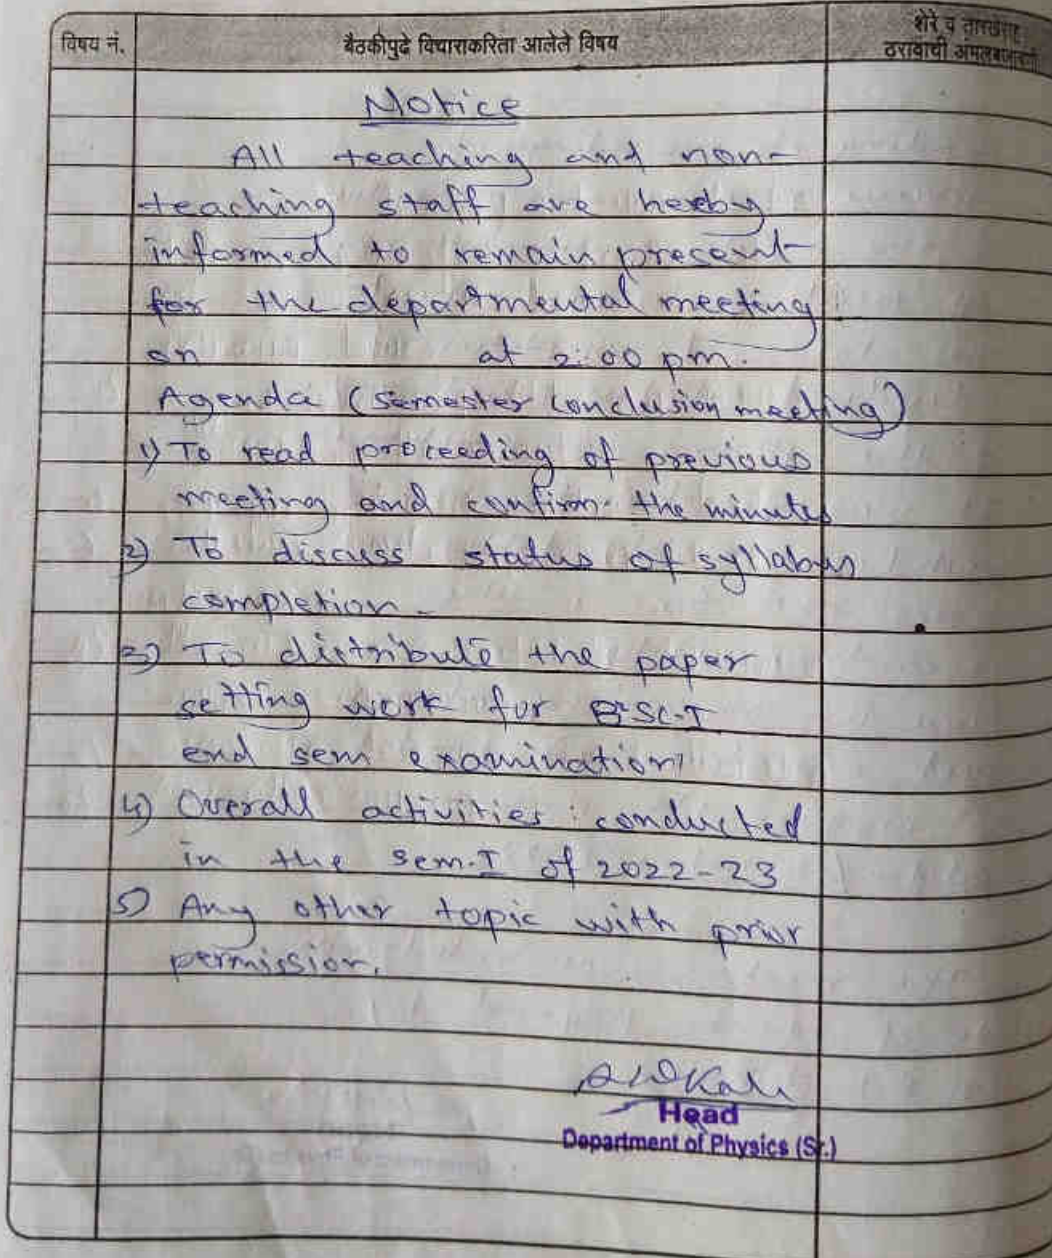 विषय नं.
बैठकीपुढे विचाराकरिता आलेले विषय
शेरे व तारखेसह
ठरावाची अमलबजावणी
Notice
All teaching and non-
teaching staff are hereby
informed to remain present
for the departmental meeting
on at 2:00 pm.
Agenda (Semester conclusion meeting)
1) To read proceeding of previous
meeting and confirm the minutes
2) To discuss status of syllabus
completion -
3) To distribute the paper
setting work for BSc-I
end sem examination
4) Overall activities conducted
in the sem-I of 2022-23
5) Any other topic with prior
permission.
Head
Department of Physics (Sr.)